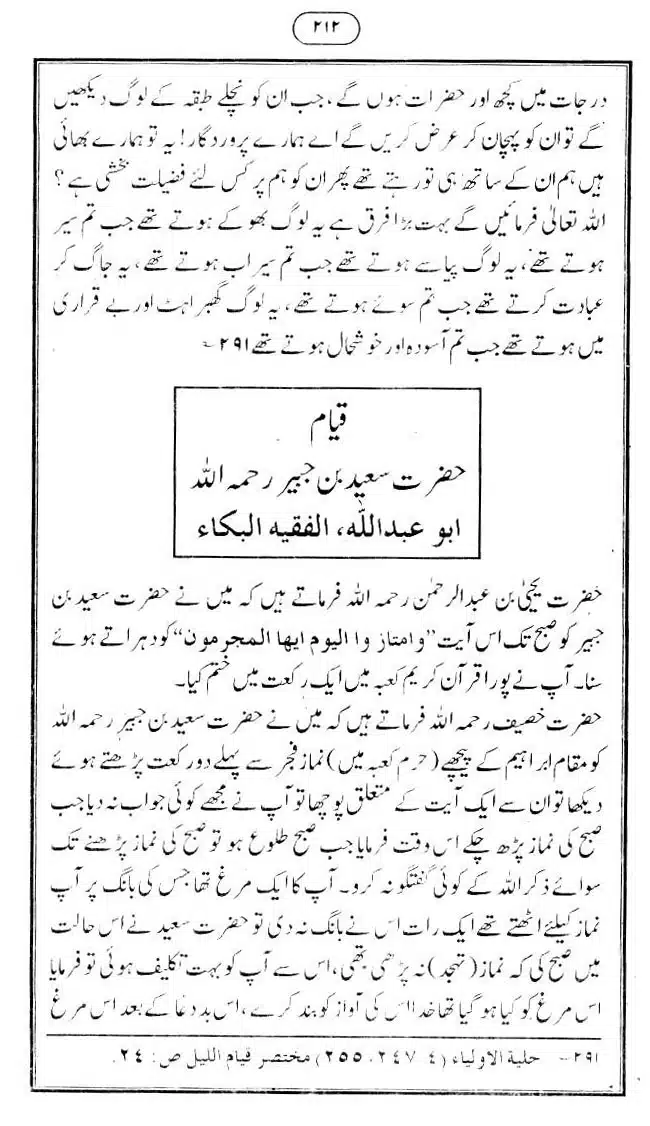 ۲۱۲
درجات میں کچھ اور حضرات ہوں گے، جب ان کو نچلے طبقہ کے لوگ دیکھیں
گے تو ان کو پہچان کر عرض کریں گے اے ہمارے پروردگار! یہ تو ہمارے بھائی
ہیں ہم ان کے ساتھ ہی تو رہتے تھے پھر ان کو ہم پر کس لئے فضیلت بخشی ہے؟
اللہ تعالیٰ فرمائیں گے بہت بڑا فرق ہے یہ لوگ بھوکے ہوتے تھے جب تم سیر
ہوتے تھے، یہ لوگ پیاسے ہوتے تھے جب تم سیراب ہوتے تھے، یہ جاگ کر
عبادت کرتے تھے جب تم سوئے ہوتے تھے، یہ لوگ گھبراہٹ اور بے قراری
میں ہوتے تھے جب تم آسودہ اور خوشحال ہوتے تھے ۲۹۱؎
قیام
حضرت سعید بن جبیر رحمہ اللہ
ابو عبدالله، الفقيه البكاء
حضرت یحییٰ بن عبدالرحمٰن رحمہ اللہ فرماتے ہیں کہ میں نے حضرت سعید بن
جبیر کو صبح تک اس آیت ”وامتاز وا اليوم ايها المجرمون“ کو دہراتے ہوئے
سنا۔ آپ نے پورا قرآن کریم کعبہ میں ایک رکعت میں ختم کیا۔
حضرت خصیف رحمہ اللہ فرماتے ہیں کہ میں نے حضرت سعید بن جبیر رحمہ اللہ
کو مقام ابراہیم کے پیچھے (حرم کعبہ میں) نماز فجر سے پہلے دو رکعت پڑھتے ہوئے
دیکھا تو ان سے ایک آیت کے متعلق پوچھا تو آپ نے مجھے کوئی جواب نہ دیا جب
صبح کی نماز پڑھ چکے اس وقت فرمایا جب صبح طلوع ہو تو صبح کی نماز پڑھنے تک
سوائے ذکر اللہ کے کوئی گفتگو نہ کرو۔ آپ کا ایک مرغ تھا جس کی بانگ پر آپ
نماز کیلئے اٹھتے تھے ایک رات اس نے بانگ نہ دی تو حضرت سعید نے اس حالت
میں صبح کی کہ نماز (تہجد) نہ پڑھی تھی، اس سے آپ کو بہت تکلیف ہوئی تو فرمایا
اس مرغ کو کیا ہو گیا تھا خدا اس کی آواز کو بند کرے، اس بددعا کے بعد اس مرغ
۲۹۱؎ حلية الاولياء (۴/ ۲۴۷، ۲۵۵) مختصر قيام الليل ص: ۲۴.